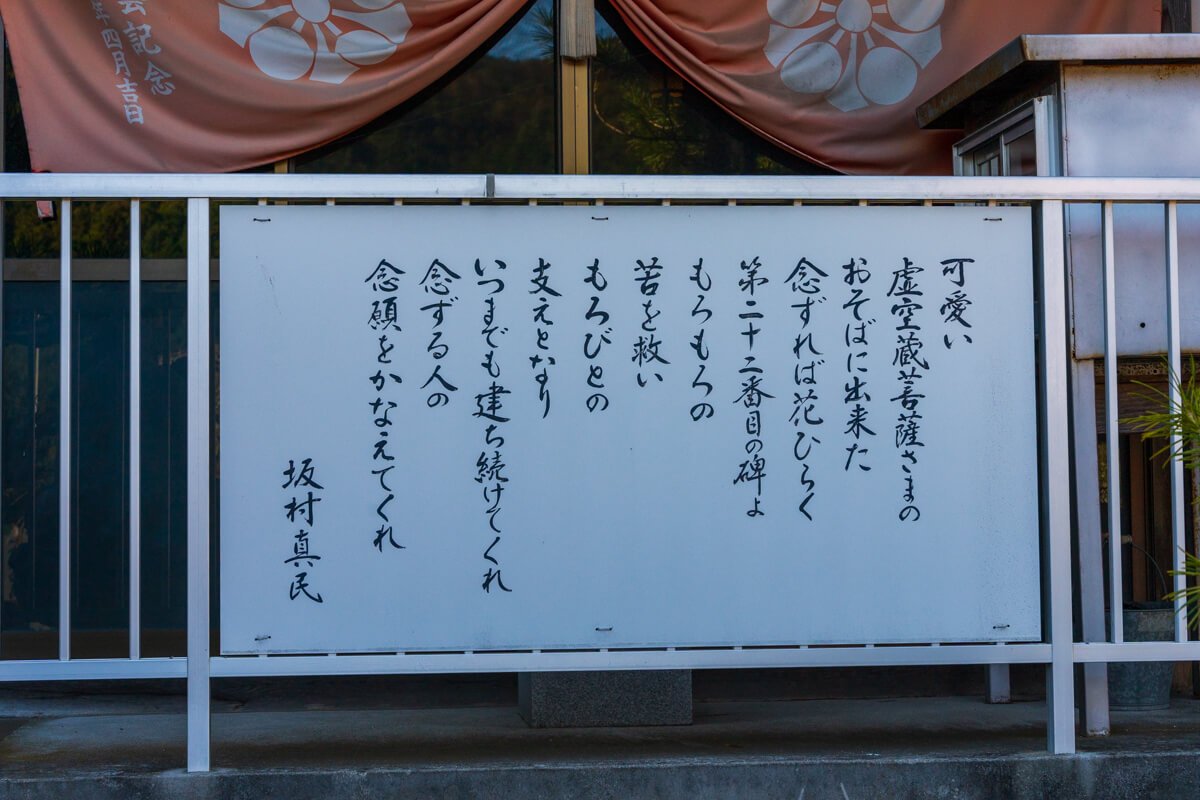 可愛い
虚空蔵菩薩さまの
おそばに出来た
念ずれば花ひらく
第二十二番目の碑よ
もろもろの
苦を救い
もろびとの
支えとなり
いつまでも建ち続けてくれ
念ずる人の
念願をかなえてくれ
坂村真民
記念
年四月吉日